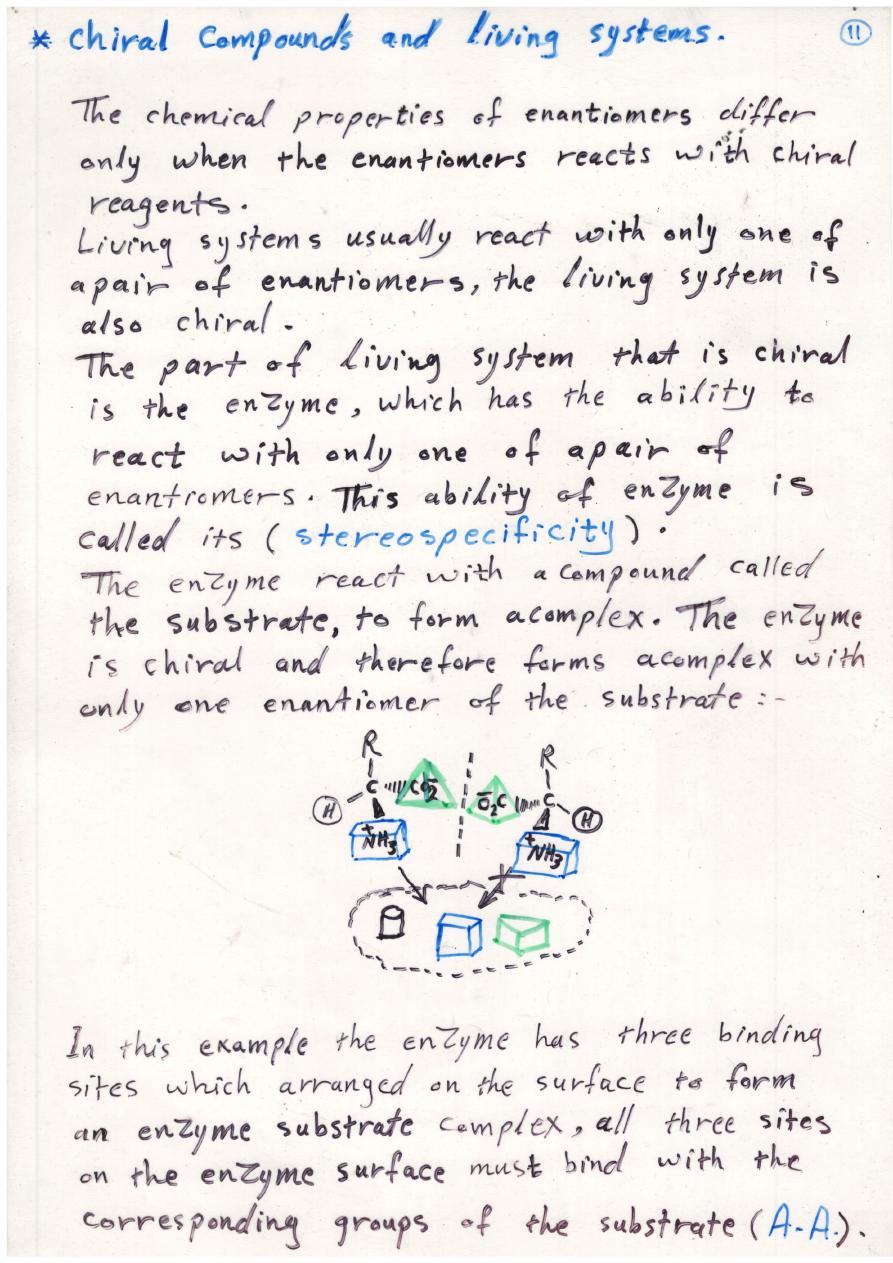 * Chiral Compounds and living systems. 11
The chemical properties of enantiomers differ
only when the enantiomers reacts with chiral
reagents.
Living systems usually react with only one of
apair of enantiomers, the living system is
also chiral.
The part of living system that is chiral
is the enzyme, which has the ability to
react with only one of apair of
enantiomers. This ability of enzyme is
called its (stereospecificity).
The enzyme react with a compound called
the substrate, to form acomplex. The enzyme
is chiral and therefore forms acomplex with
only one enantiomer of the substrate :-
R R
H C CO2- -O2C C H
+NH3 +NH3
In this example the enzyme has three binding
sites which arranged on the surface to form
an enzyme substrate complex, all three sites
on the enzyme surface must bind with the
corresponding groups of the substrate (A.A.).